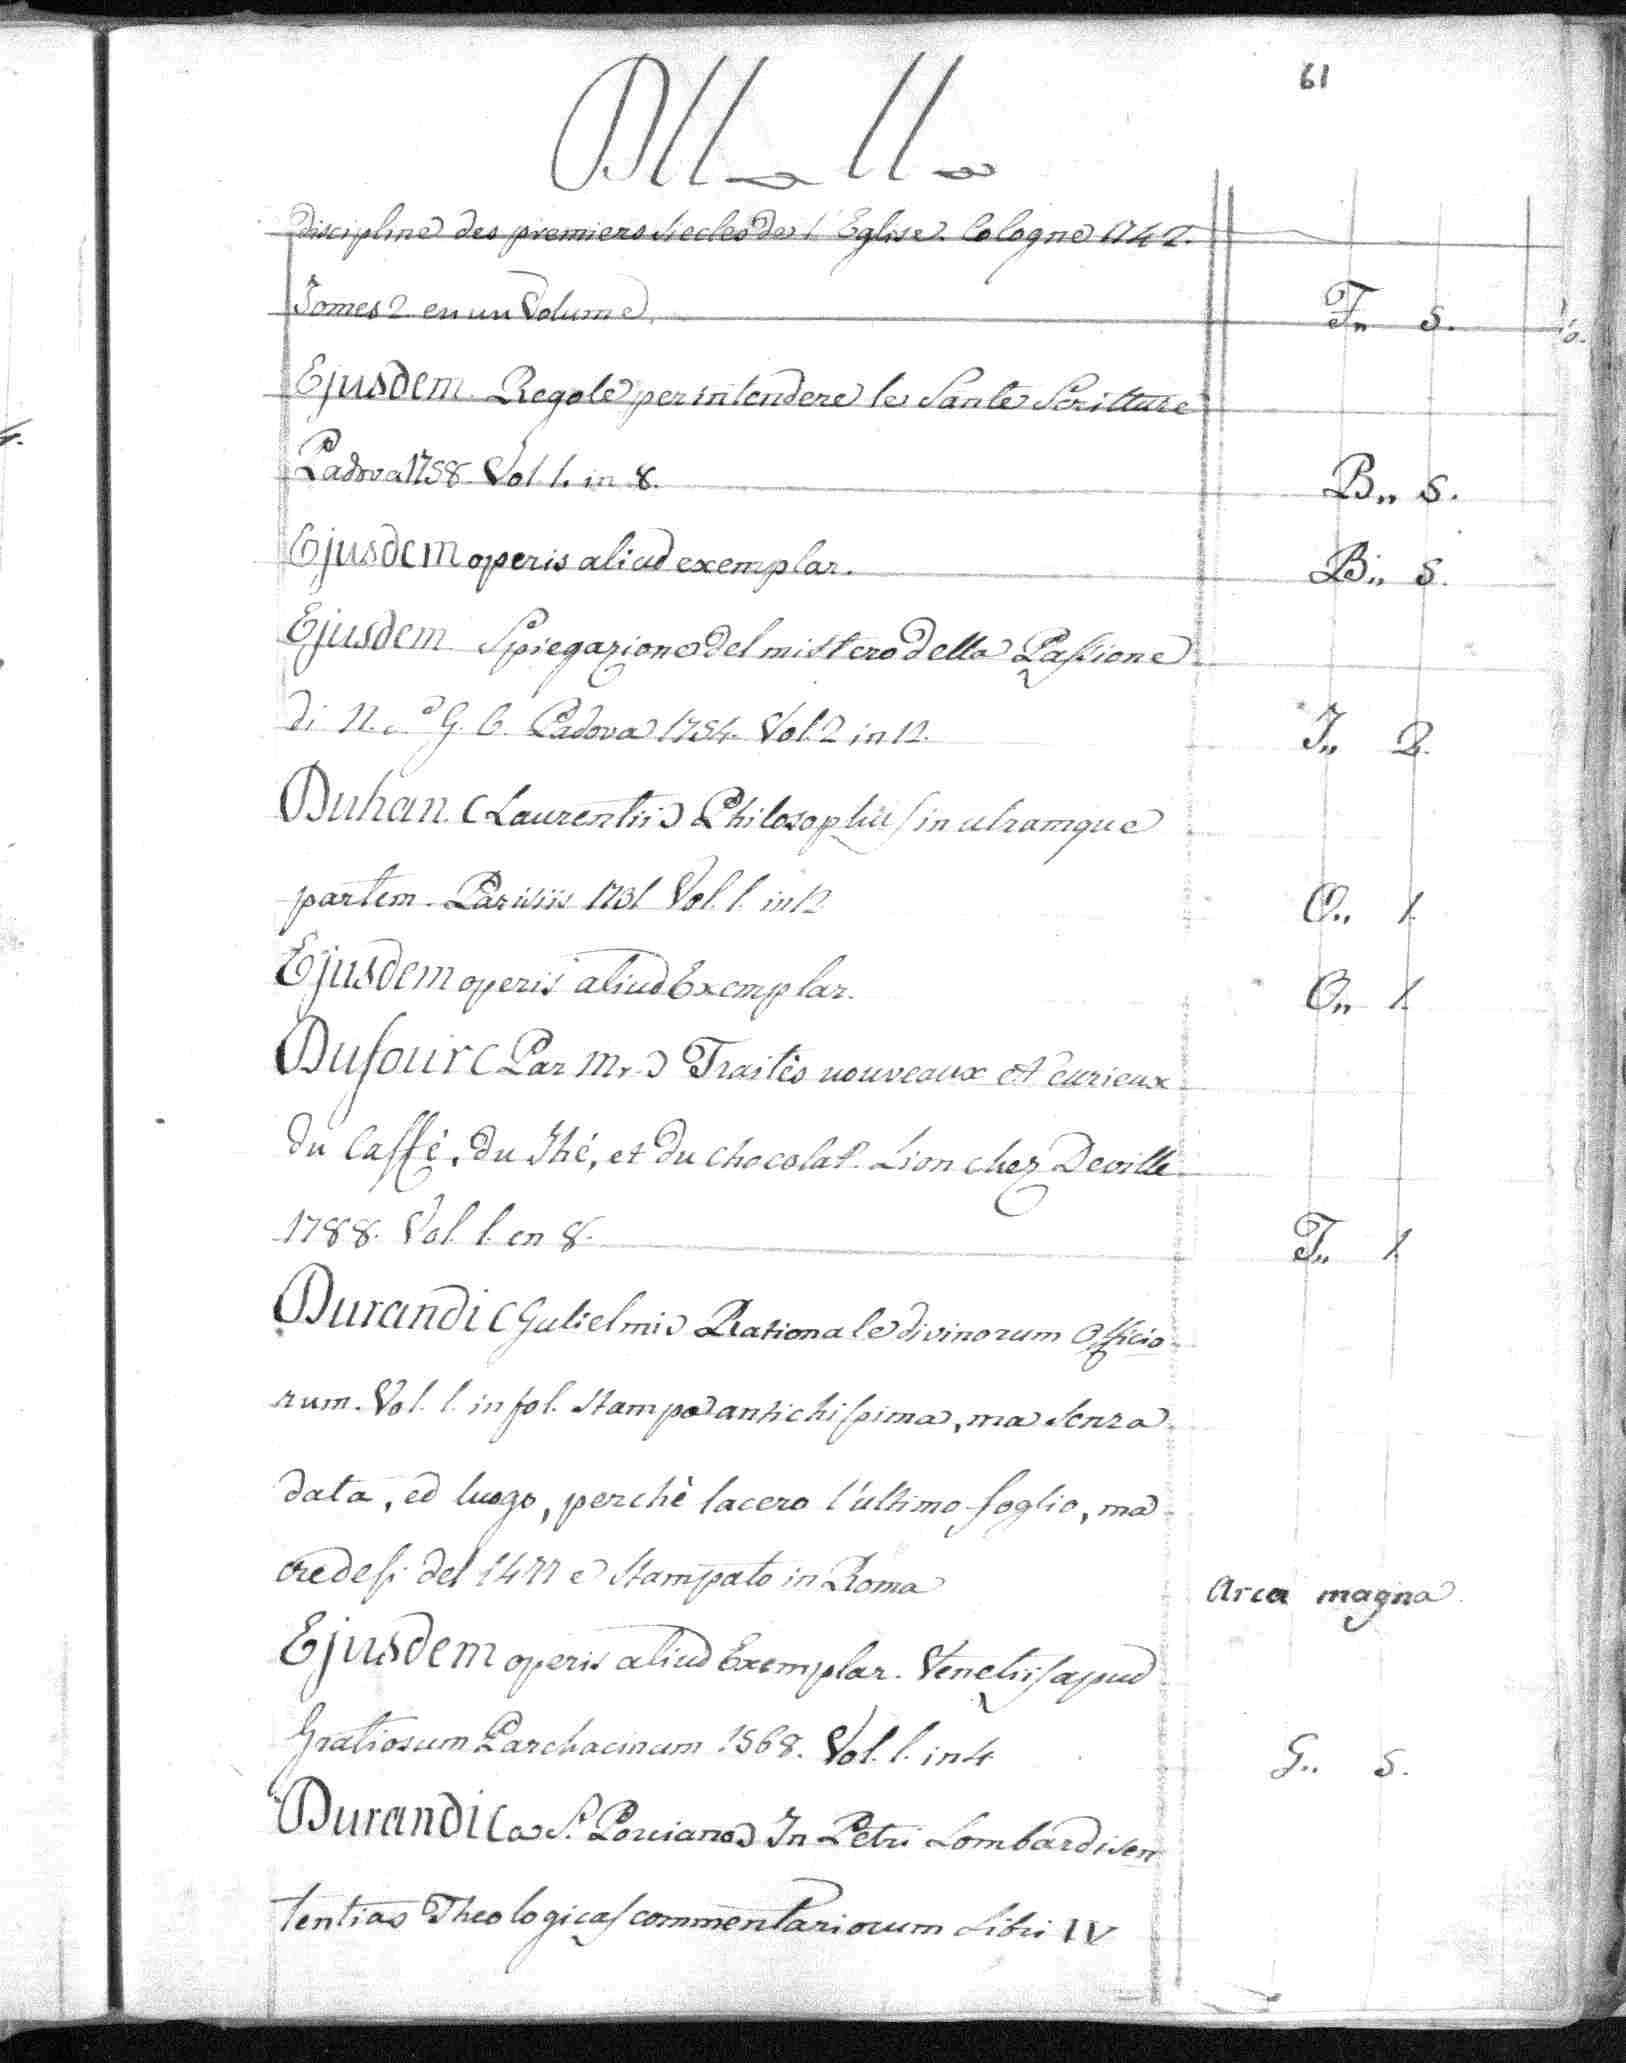 61
DU_U_
discipline des premiers siecles de l'Eglise. Cologne 1742.
Tomes 2 en un Volume. F,, 5.
Ejusdem Regole per intendere le Sante Scritture
Padova 1758. Vol. 1. in 8. B,, 5.
Ejusdem operis aliud exemplar. B,, 5.
Ejusdem Spiegazione del mistero della Passione
di N. G. C. Padova 1754. Vol. 2 in 12. I,, 2.
Duhan (Laurentii) Philosophus in utramque
partem. Parisiis 1731 Vol. 1. in 12. O,, 1.
Ejusdem operis aliud Exemplar. O,, 1.
Dufour (Par Mr.) Traitès nouveaux et curieux
du Caffè, du Thé, et du chocolat. Lion chez Deville
1788. Vol. 1. en 8. T,, 1.
Durandi (Gulielmi) Rationale divinorum Officio
rum. Vol. 1. in fol. Stampa antichissima, ma senza
data, ed luogo, perchè lacero l'ultimo foglio, ma
credesi del 1477 e Stampato in Roma Arca magna
Ejusdem operis aliud Exemplar. Venetiis apud
Gratiosum Parchacinum 1568. Vol. 1. in 4 G,, 5.
Durandi (a S. Porciano) In Petri Lombardi sen
tentias Theologicas commentariorum Libri IV